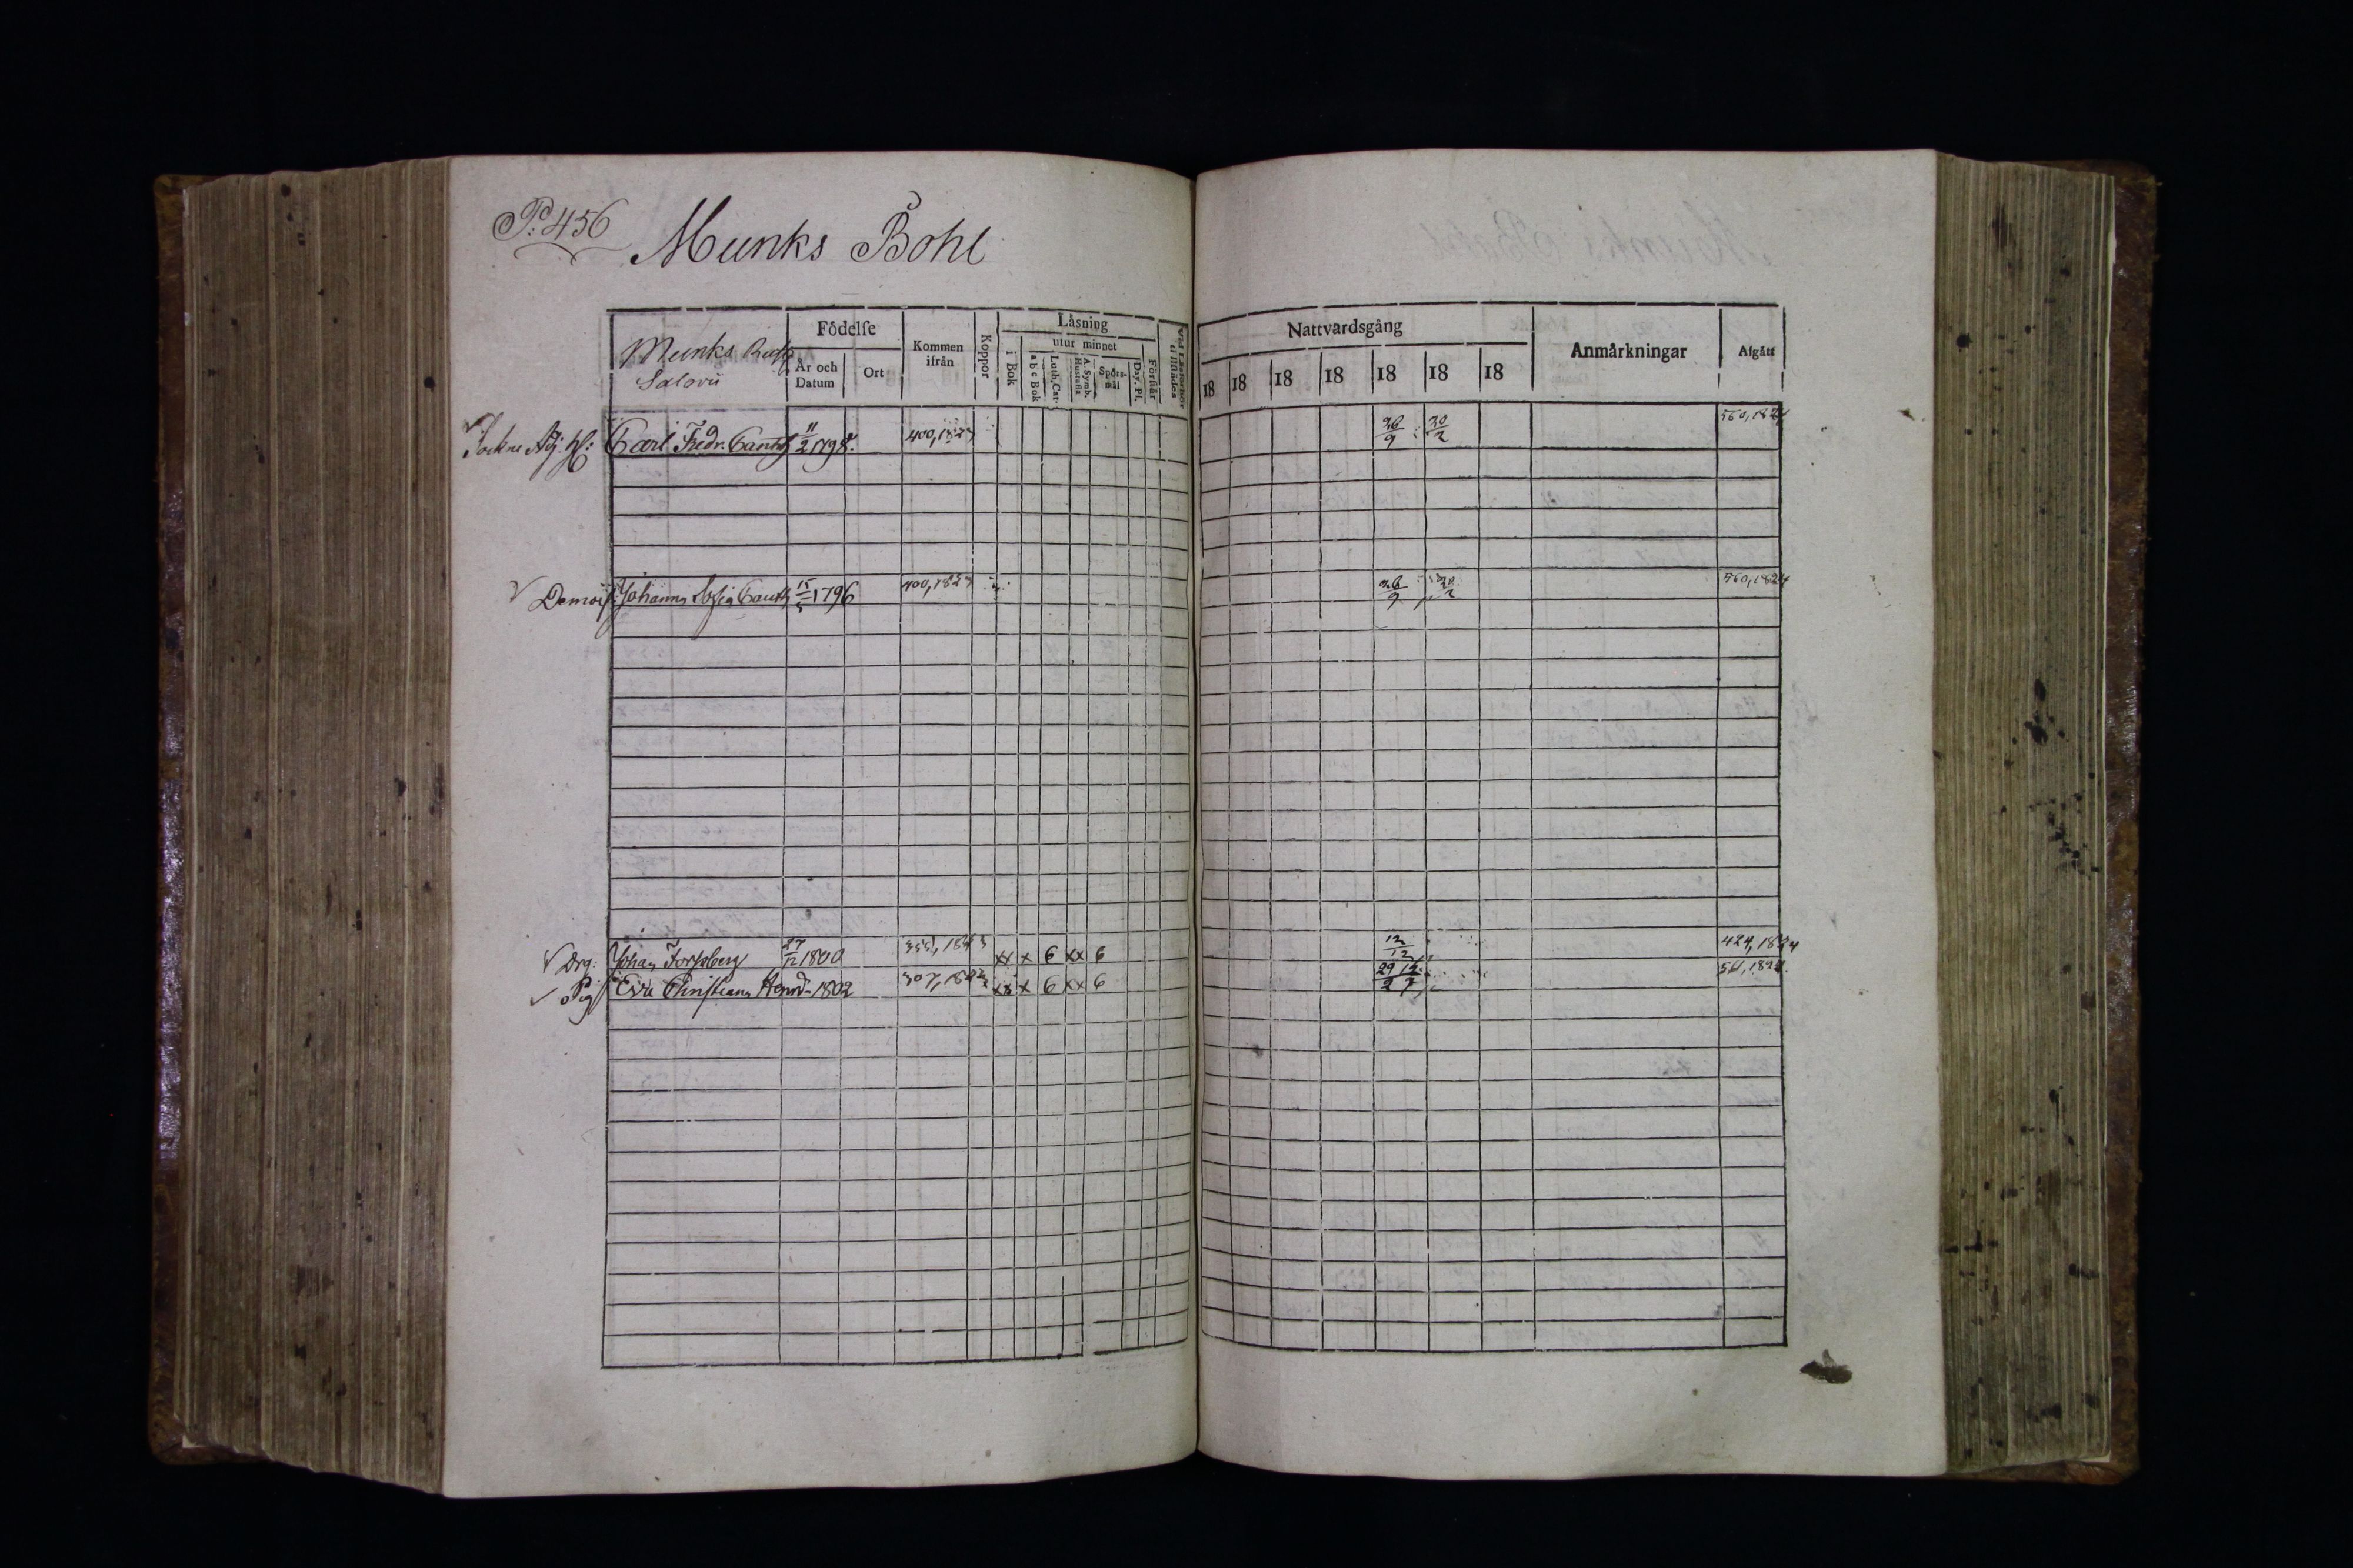 P: 456
Munks Bohl
Munks
Födelse
År och Datum
Ort
Kommen ifrån
Koppor
Läsning
i Bok
utur minnet
a b c Bok
Luth. Cat.
A. Symb. Hustafla
Spörsmål
Dav. Ps.
Förstår
Nattvardsgång
18 18 18 18 18 18 18
Anmärkningar
Afgått
Carl Fredr. 11/2 1798. 400, 1823 26/9 20/2 560, 1824
Demois. Johanna Sofia 15/1796 400, 1823 26/9 20/2 560, 1824
Drg: Johan Forssberg 27/12 1800 355, 1823 xx x 6 xx 6 12/12 424, 1824
Pig Eva Christiana Henrd 1802 307, 1823 xx x 6 xx 6 29/2 561, 1824